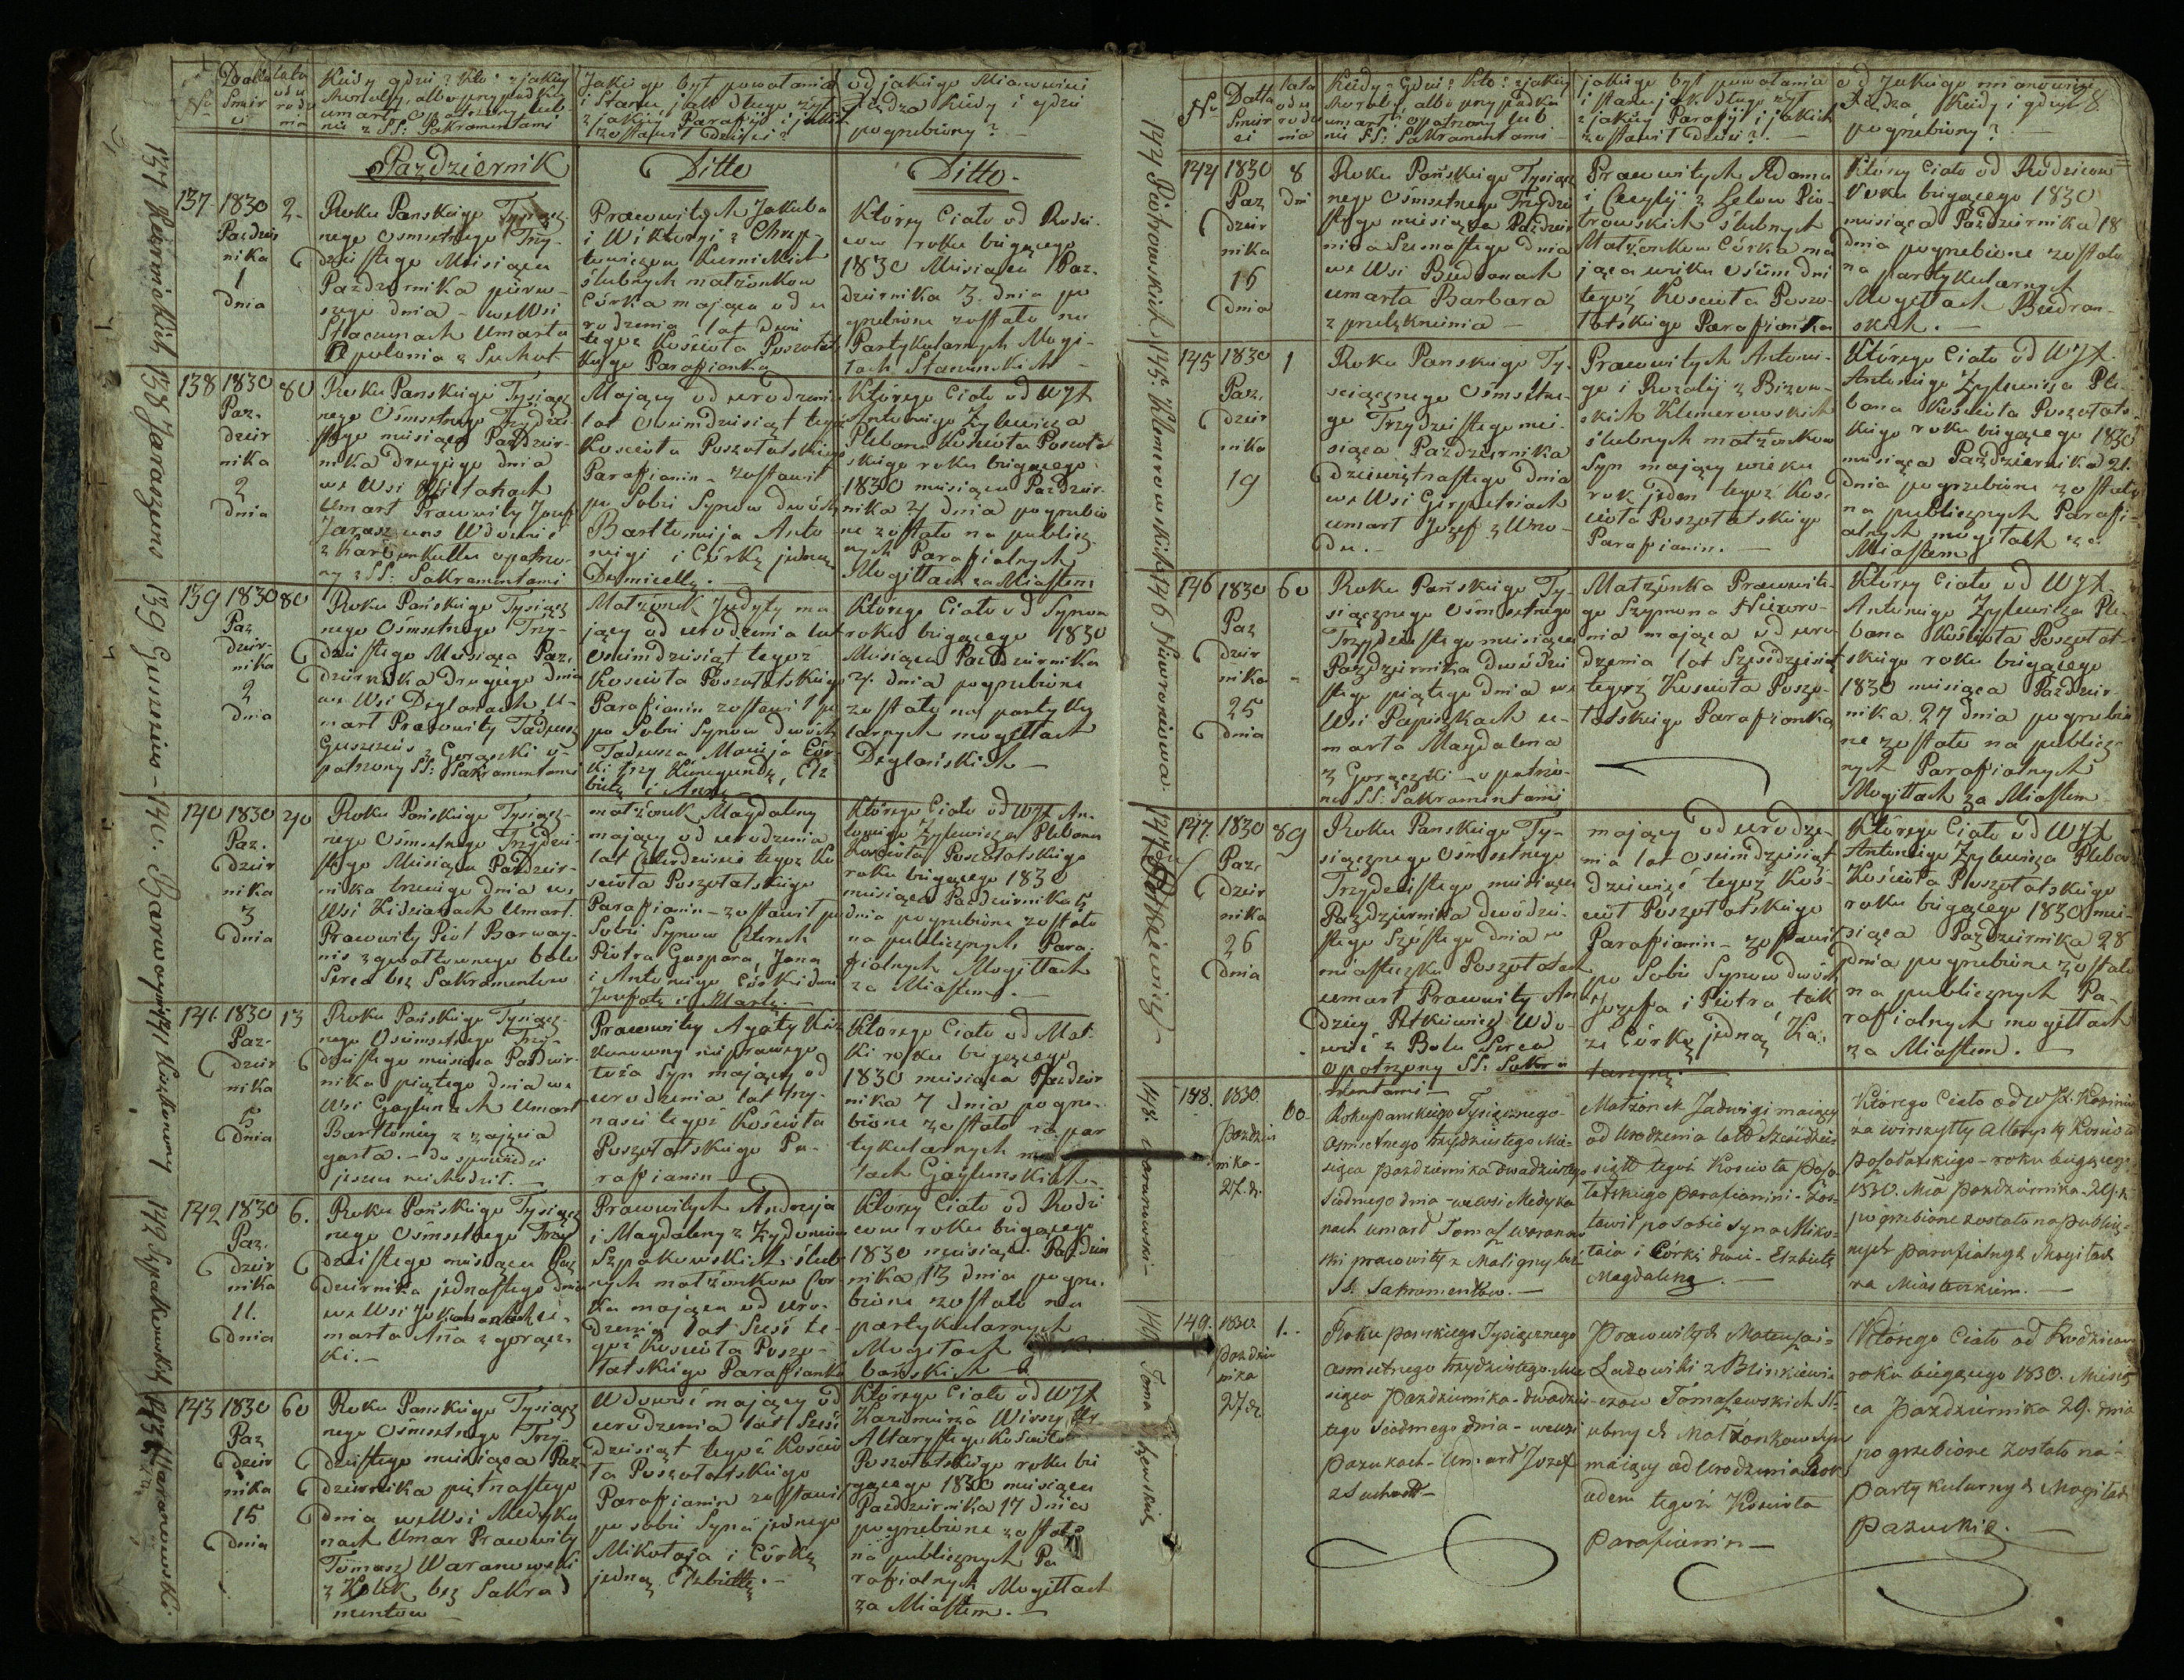 No
Datta Smierci
lata od urodzenia
Kiedy gdzie? Kto? z jakiey
choroby, albo przypadku
umarł, opatrzony lub
nie z SS: Sakramentami
Jakiego był powołania
i stanu jak długo żył
z jakiey Parafij i jakich
zostawił Dzieci?
od jakiego Mianowicie
Xiędza kiedy i gdzie
pogrzebiony?
Październik
Ditto
Ditto
137
1830
Pazdzier
nika
1
dnia
2
Roku Panskiego Tysiącz
nego Osmsetnego Trzy-
dziestego Miesiąca
Pazdziernika pierw-
szego dnia weWsi
Umarła
Apolonia z Suchot
Prawowitych Jakuba
i Wiktoryi z
ślubnych małżonkow
Córka mająca od u
rodzenia lat dwie
tegoż Kościoła Poszołats
kiego Parafianka
Którey Ciało od Rodzi-
cow roku bieżącego
1830 Miesiąca Paz-
dziernika 3 dnia po
grzebione zostało na
Partykularnych Mogi-
łach
138
1830
Paz-
dzier
nika
2
dnia
80
Roku Panskiego Tysiącz
nego Osmsetnego Trzydzie
stego miesiąca Pazdzier-
nika drugiego dnia
we Wsi
Umarł Prawowity Jozef
Jaraszuns Wdowiec
z Karbunkułu opatrzo-
ny z SS: Sakramentami
Mający od urodzenia
lat Osimdziesiąt tegoż
Kościoła Poszołatskiego
Parafianin zostawił
po Sobie Synow dwóch
Bartłomieja Anto
niego i Córkę jedną
Dominicellę.
Którego Ciało od WJX
Antoniego Zylewicza
Plebana Kościoła Poszołat
skiego roku bieżącego
1830 miesiąca Pazdzier-
nika 4 dnia pogrzebio
ne zostało na publicz-
nych Parafialnych
Mogiłłach za Miastem
139
1830
Paz
dzier-
nika
2
dnia
80
Roku Pańskiego Tysiącz
nego Osmsetnego Trzy-
dziestego Miesiąca Paz-
dziernika drugiego dnia
we Wsi Deglanach U-
marł Prawowity Tadeusz
Guszczius z Gorączki o-
patrzony SS: Sakramentami
Małżonek Judyty ma
jący od urodzenia lat
Osimdziesiąt tegoż
Kościoła Poszołatskiego
Parafianin zostawił
po Sobie Synow dwóch
Tadeusza Macieja Cór-
ki trzy Kunegundę, Elz
bietę i Annę
Którego Ciało od Synow
roku bieżącego 1830
Miesiąca Pazdziernika
4 dnia pogrzebione
zostało na partyku
larnych mogiłłach
Deglańskich
140
1830
Paz.
dzier
nika
3
dnia
40
Roku Pańskiego Tysiącz
nego Osmsetnego Trzydzie
stego Miesiąca Pazdzier-
nika trzeciego dnia we
Wsi Kidzianach Umarł
Prawowity Piotr Barway-
nis z gwałtownego bolu
Serca bez Sakramentow
małżonek Magdaleny
mający od urodzenia
lat Czterdzieście tegoż Ko
ścioła Poszołatskiego
Parafianin zostawił po
Sobie Synow czterech
Piotra Gaspara, Jana
i Antoniego Córki dwie
Jozefatę i Martę.
Którego Ciało od WJX An-
toniego Zylewicza Plebana
Kościoła Poszołatskiego
roku bieżącego 1830
miesiąca Pazdziernika 5
dnia pogrzebione zostało
na publicznych Para-
fialnych Mogiłłach
za Miastem.
141
1830
Paz-
dzier
nika
5
dnia
13
Roku Pańskiego Tysiącz
nego Osmsetnego Trzy-
dziestego miesiąca Pazdzier-
nika piątego dnia we
Wsi Gaylunach Umarł
Bartłomiey z zajęcia
garła. do spowiedzi
jeszcze nie chodził.
Prawowitey Agaty
nieprawego
łoża Syn mający od
urodzenia lat trzy-
naście tegoż Kościoła
Poszołatskiego Pa-
rafianin
Którego Ciało od Mat-
ki roku bieżącego
1830 miesiąca Pazdzier
nika 7 dnia pogrze-
bione zostało na par
tykularnych mo
łach Gaylunskich
142
1830
Paz.
dzier
nika
11.
dnia
6.
Roku Pańskiego Tysiącz
nego Osmsetnego Trzy
dziestego miesiąca Paz
dziernika jednastego dnia
we Wsi
marła Anna z gorącz-
ki.
Prawowitych Andrzeja
i Magdaleny z
Szpakowskich ślub
nych małżonkow Cor
ka mająca od uro-
dzenia lat Sześć te-
goż Kościoła Poszo-
łatskiego Parafianka
Którey Ciało od Rodzi
cow roku bieżącego
1830 miesiąca Pazdzier
nika 13 dnia pogrze-
bione zostało na
partykularnych
Mogiłach
143
1830
Paz
dzier
nika
15
dnia
60
Roku Panskiego Tysiącz
nego Osmsetnego Trzy-
dziestego miesiąca Paz-
dziernika piętnastego
dnia weWsi Medyku
nach Umar Prawowity
Tomasz Waranowski
z Kolek bez Sakra
mentow
Wdowiec mający od
urodzenia lat Sześć
dziesiąt tegoż Koscio
ła Poszołatskiego
Parafianin zostawił
po sobie Syna jednego
Mikołaja i Córkę
jedną Elzbiettę.
Którego Ciało od WJX
Kazimierza
Altarysty Kościoła
Poszołatskiego roku bie
żącego 1830 miesiąca
Pazdziernika 17 dnia
pogrzebione zostało
na publicznych Pa
rafialnych Mogiłłach
za Miastem.
No
Datta Smierci
lata od urodzenia
Kiedy? Gdzie? Kto? z jakiey
choroby, albo przypadku
umarł, opatrzony lub
nie SS: Sakramentami
jakiego był powołania
i stanu jak długo żył
z jakiey Parafij i jakich
zostawił Dzieci?
od Jakiego mianowicie
Xiędza kiedy i gdzie
pogrzebiony?
144
1830
Paz
dzier
nika
16
dnia
8
dni
Roku Pańskiego Tysiącz
nego Osmsetnego Trzydzie
stego miesiąca Pazdzier
nika Szesnastego dnia
we Wsi Budranach
umarła Barbara
z przelęknienia
Prawowitych Adama
i Cecylij z Lelow Pio-
trowskich ślubnych
Małżonkow Córka ma
jąca wieku Osiem dni
tegoż Kościoła Poszo-
łatskiego Parafianka
Którey Ciało od Rodzicow
Roku bieżącego 1830
miesiąca Pazdziernika 18
dnia pogrzebione zostało
na partykularnych
Mogiłłach Budran-
skich.
145
1830
Paz.
dzier
nika
19
1
Roku Panskiego Ty-
siącznego Osmsetne-
go Trzydziestego mie-
siąca Pazdziernika
dziewiętnastego dnia
we Wsi Gierpetriach
umarł Jozef z Wrzo-
du.
Prawowitych Antonie-
go i Rozalij z Birzow-
skich Klemerowskich
ślubnych małżonkow
Syn mający wieku
rok jeden tegoż Koś-
cioła Poszołatskiego
Parafianin.
Którego Ciało od WJX
Antoniego Zylewicza Ple-
bana Kościoła Poszołats-
kiego roku bieżącego 1830
miesiąca Pazdziernika 21.
dnia pogrzebione zostało
na publicznych Parafi-
alnych mogiłach za
Miastem
146
1830
Paz
dzier
nika
25
dnia
60
Roku Pańskiego Ty-
siącznego Osmsetnego
Trzydziestego miesiąca
Pazdziernika dwódzie
stego piątego dnia we
Wsi Papiszkach u-
marła Magdalena
z Gorączki opatrzo-
na SS: Sakramentami
Małżonka Prawowite-
go Szymona
nia mająca od uro-
dzenia lat Sześćdziesiąt
tegoż Kościoła Poszo-
łatskiego Parafianka
Którey Ciało od WJX.
Antoniego Zylewicza Ple-
bana Kościoła Poszołat-
skiego roku bieżącego
1830 miesiąca Pazdzier-
nika 27 dnia pogrzebio
ne zostało na publicz-
nych Parafialnych
Mogiłłach za Miastem
147.
1830
Paz.
dzier
nika
26
dnia
89
Roku Panskiego Ty-
siącznego Osmsetnego
Trzydziestego miesiąca
Pazdziernika dwódzie-
stego Szóstego dnia w
miasteczku Poszołatach
umarł Prawowity An
drzey Petkiewicz Wdo-
wiec z Bolu Serca
opatrzony SS: Sakra
mentami
mający od urodze-
nia lat osimdziesiąt
dziewięć tegoż Koś-
cioł Poszołatskiego
Parafianin zostawił
po Sobie Synow dwóch
Jozefa i Piotra, tak
że Córkę jedną Ka-
tarzynę
Którego Ciało od WJX
Antoniego Zylewicza Pleba
Kościoła Poszołatskiego
roku bieżącego 1830 mie-
siąca Pazdziernika 28
dnia pogrzebione zostało
na publicznych Pa-
rafialnych mogiłłach
za Miastem.
148.
1830.
pazdzier
nika-
27. d.
60
Roku panskiego Tysiącznego
osmsetnego trzydziestego Mie-
siąca pazdziernika dwadziestego
siódmego dnia we wsi Medyku
nach umarł Tomasz Waranow
ski pracowity z Maligny bez
SS. Sakramentow.
Małżonek Jadwigi maiący
od urodzenia latt Sześćdzie
siątt tegoż Kościoła poszo
łatskiego parafianin zos-
tawił po sobie syna Miko-
łaia i Córki dwie Elzbietę
Magdalenę.
Którego Ciało od WJX. Kazimie
rza Altarysty Kościoła
poszołatskiego roku bieżącego
1830. Mca pazdziernika 29. d.
pogrzebione zostało na publicz-
nych parafialnych Mogiłach
za Miasteczkiem.
149.
1830.
pazdzier
nika
27. d.
1.
Roku panskiego Tysiącznego
osmsetnego trzydziestego Mie
siąca pazdziernika dwadzies-
tego siódmego dnia we wsi
pazukach Umarł Jozef
z Suchott
Prawowitych Mateusza i
Ludowiki z Blinkiewi-
czow Tomaszewskich śl-
ubnych Małżonkow Syn
maiący od Urodzenia Rok
ieden tegoż Kościoła
parafianin
Którego Ciało od Rodzicow
roku bieżącego 1830. Miesią
ca pazdziernika 29. dnia
pogrzebione zostało na
partykularnych Mogiłach